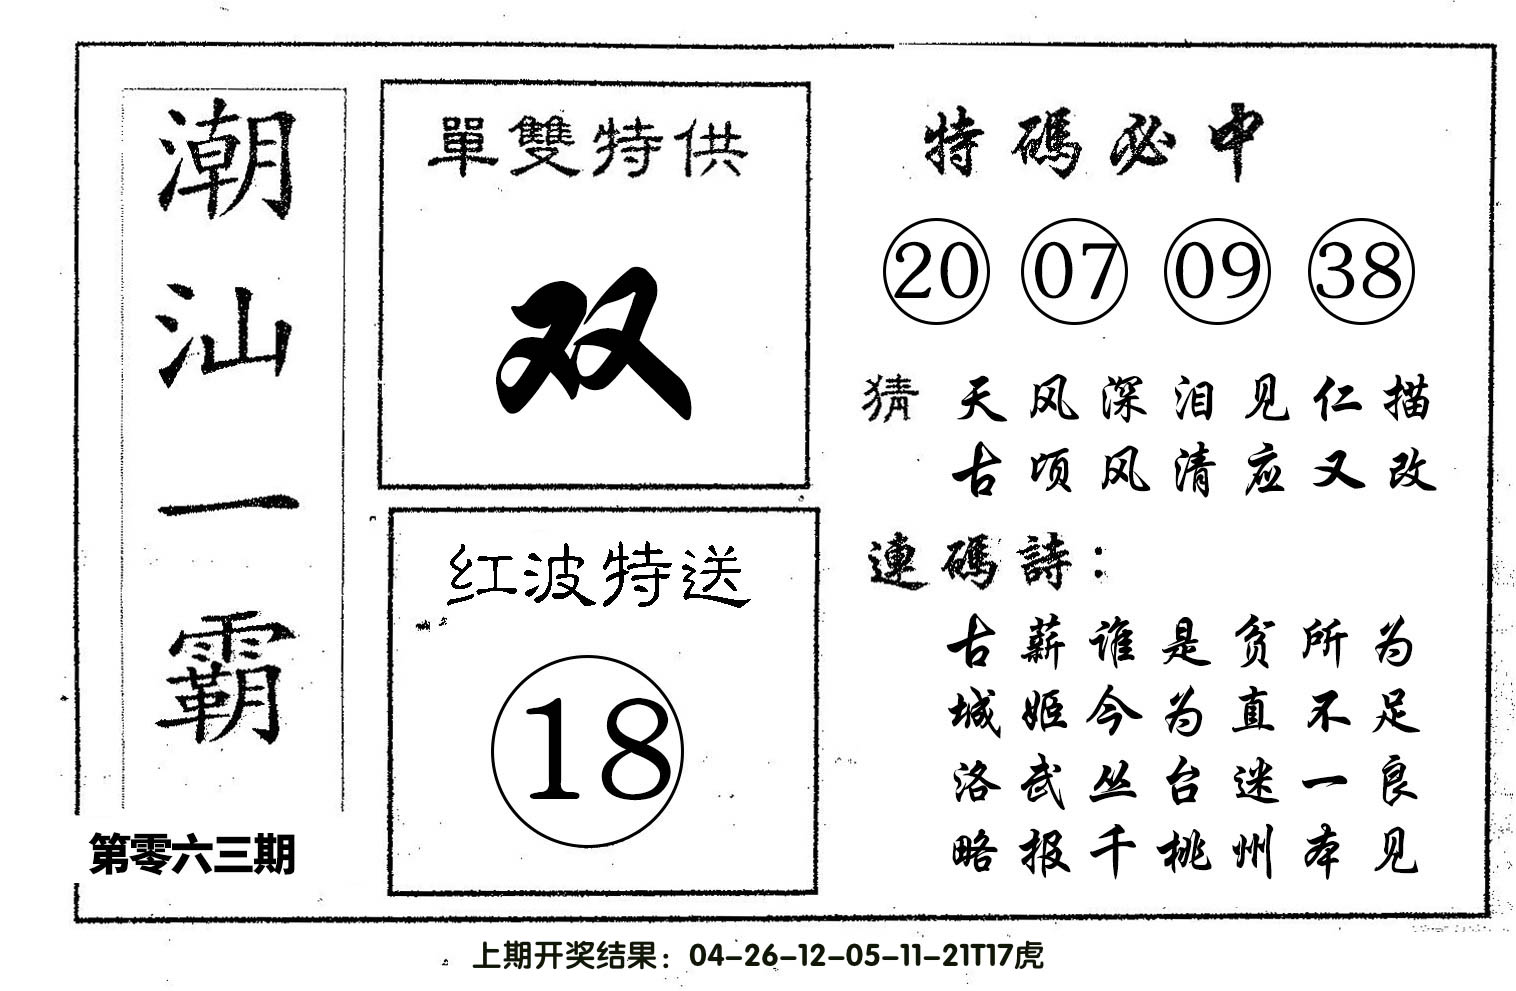 潮汕一霸
第零六三期
單雙特供
双
红波特送
18
特碼必中
20 07 09 38
猜 天风深泪见仁描
古顷风清应又改
連碼詩：
古薪谁是贫所为
城姬今为直不足
洛武丛台迷一良
略报千桃州本见
上期开奖结果：04-26-12-05-11-21T17虎